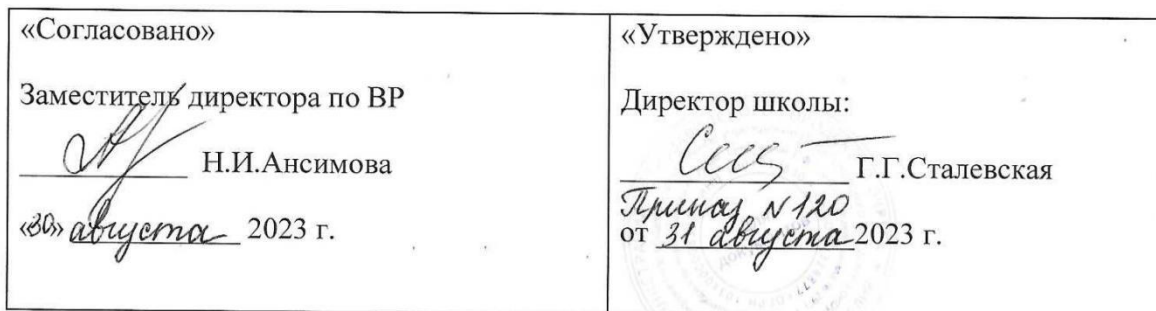 «Согласовано»
Заместитель директора по ВР
Н.И.Ансимова
«30» августа 2023 г.
«Утверждено»
Директор школы:
Г.Г.Сталевская
Приказ N 120
от 31 августа 2023 г.